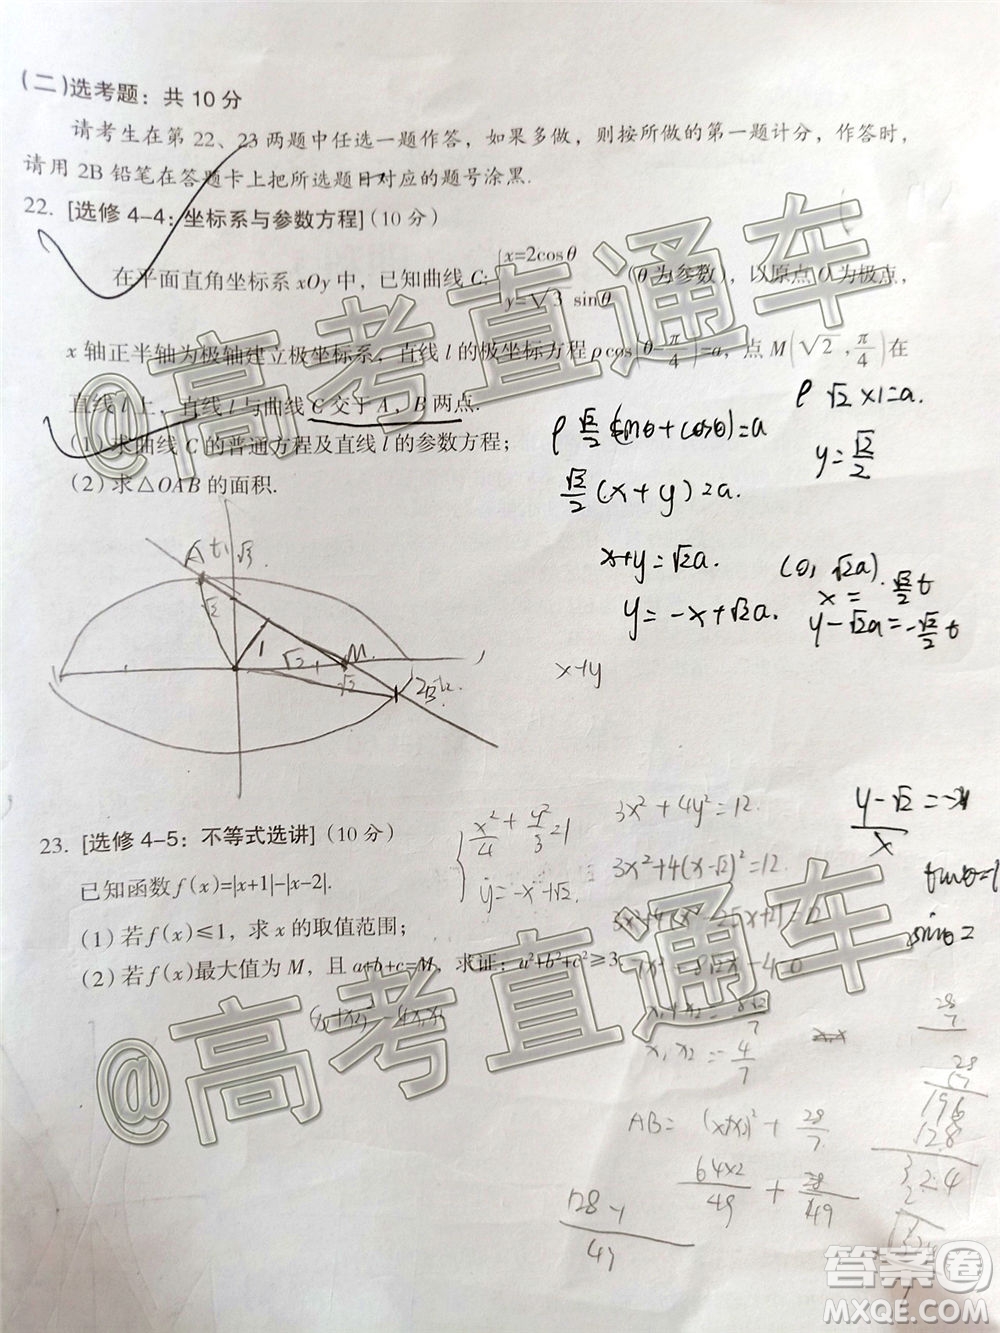 (二)选考题：共 10 分
请考生在第 22、23 两题中任选一题作答，如果多做，则按所做的第一题计分，作答时，
请用 2B 铅笔在答题卡上把所选题目对应的题号涂黑.
22. [选修 4-4：坐标系与参数方程](10 分)
在平面直角坐标系 xOy 中，已知曲线 C: {x=2cosθ y=√3 sinθ (θ 为参数)，以原点 O 为极点，
x 轴正半轴为极轴建立极坐标系，直线 l 的极坐标方程 ρcos(θ-π/4)=a，点 M(√2, π/4)在
直线 l 上，直线 l 与曲线 C 交于 A，B 两点.
(1)求曲线 C 的普通方程及直线 l 的参数方程；
(2)求△OAB 的面积.
ρ√2×1=a.
ρ √2/2 (sinθ+cosθ)=a
y=√2/2
√2/2 (x+y)=a.
x+y=√2a.
y=-x+√2a.
(0, √2a)
x= √2/2 t
y-√2a=-√2/2 t
x+y
A t₁ √3
√2
1
√2
M
√2
2
B t₂
23. [选修 4-5：不等式选讲](10 分)
已知函数 f(x)=|x+1|-|x-2|.
(1)若 f(x)≤1，求 x 的取值范围；
(2)若 f(x)最大值为 M，且 a+b+c=M，求证：a²+b²+c²≥3.
{x²/4+y²/3=1
y=-x+√2
3x²+4y²=12.
3x²+4(x-√2)²=12.
3x²+4(x²-2√2x+2)=12
7x²-8√2x-4=0
x₁+x₂=8√2/7
x₁x₂=-4/7
(x₁+x₂)²-4x₁x₂
AB= (x₁+x₂)²+28/7
64×2/49 + 28/49
128
49
y-√2/x
28
7
28
196
128
324
@高考直通车
@高考直通车
答案圈
MXQE.COM